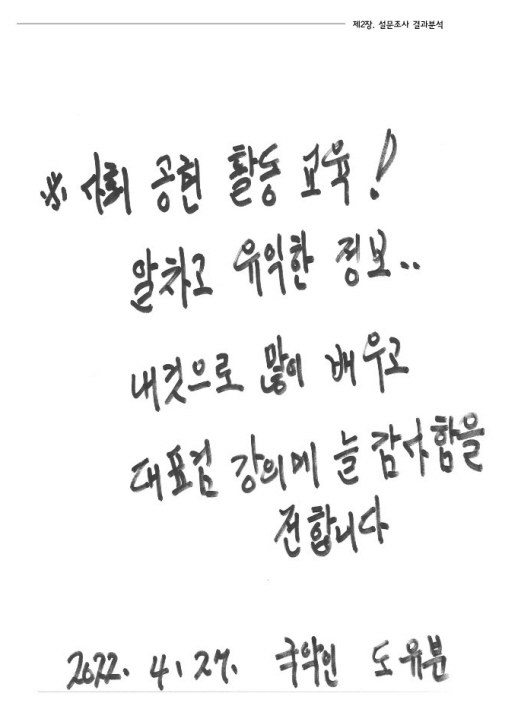 제2장. 설문조사 결과분석
※ 사회 공헌 활동 교육!
알차고 유익한 정보..
내것으로 많이 배우고
대표님 강의에 늘 감사함을
전합니다
2022. 4. 27. 국악인 도유분